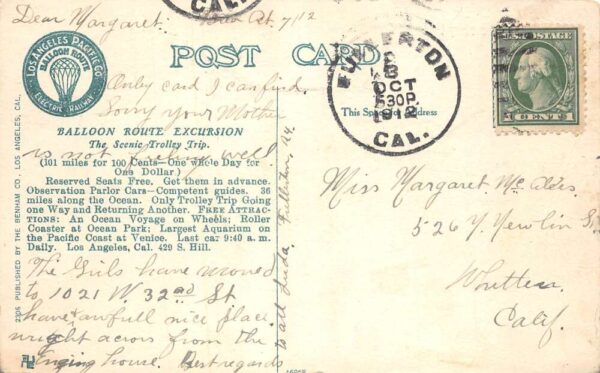 Dear Margaret.
CAL.
LOS ANGELES PACIFIC CO.
BALLOON ROUTE
ELECTRIC RAILWAY
POST CARD
FULLERTON
OCT
530P.
1912
CAL.
U.S. POSTAGE
1 CENT 1
This Space for Address
Only card I can find.
Sorry your Mother
is not feeling well.
BALLOON ROUTE EXCURSION
The Scenic Trolley Trip.
(101 miles for 100 Cents–One Whole Day for
One Dollar)
Reserved Seats Free. Get them in advance.
Observation Parlor Cars—Competent guides. 36
miles along the Ocean. Only Trolley Trip Going
one Way and Returning Another. FREE ATTRAC-
TIONS: An Ocean Voyage on Wheels; Roller
Coaster at Ocean Park; Largest Aquarium on
the Pacific Coast at Venice. Last car 9:40 a. m.
Daily. Los Angeles, Cal. 429 S. Hill.
The Girls have moved
to 1021 W. 32nd St
have awfull nice place
wright acors from the
Enging house. Best regards
to all
Miss Margaret
526
Calif.
2306 PUBLISHED BY THE BENHAM CO., LOS ANGELES, CAL.